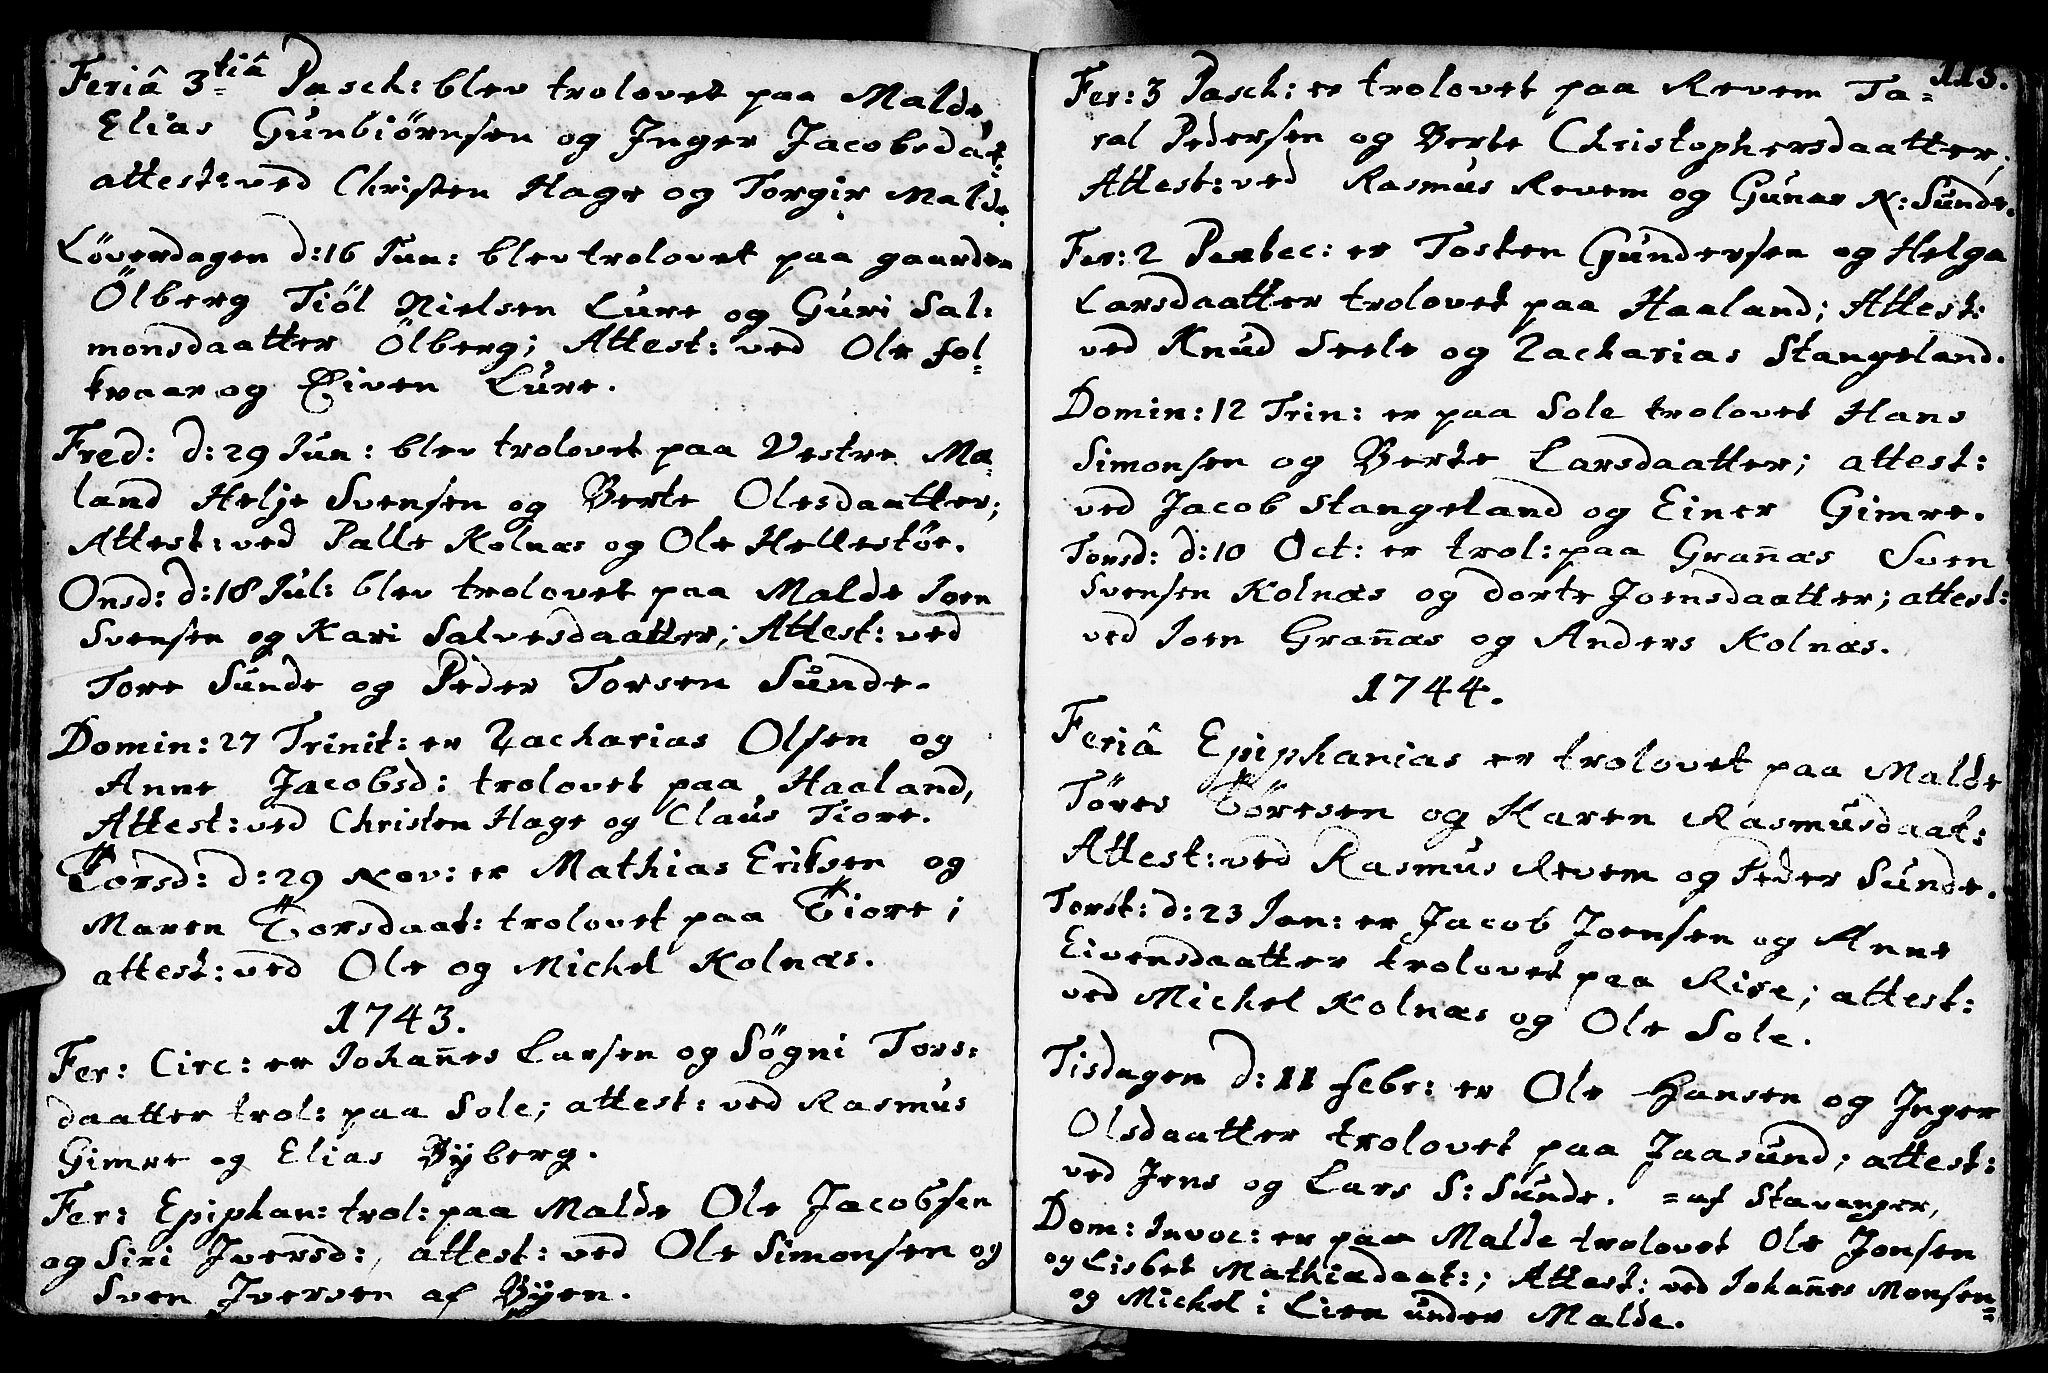 Feriâ 3tiâ Pasch: blev trolovet paa Malde,
Elias Gunbiörnsen og Inger Jacobsdat:
attest: ved Christen Hage og Torgir Malde.
Löverdagen d: 16 Jun: blev trolovet paa gaarden
Ölberg Tiöl Nielsen Lure og Guri Sal:
monsdaatter Ölberg; Attest: ved Ole Sol=
kvaar og Eiven Lure.
Fred: d: 29 Jun: blev trolovet paa Vestre Mæ=
land Helje Svensen og Berte Olesdaatter;
Attest: ved Palle Kolnæs og Ole Hellestöe.
Onsd: d: 18 Jul: blev trolovet paa Malde Joen
Svensen og Kari Salvesdaatter; Attest: ved
Tore Sunde og Peder Torsen Sunde.
Domin: 27 Trinit: er Zacharias Olsen og
Anne Jacobsd: trolovet paa Haaland,
Attest: ved Christen Hage og Claus Tiore.
Torsd: d: 29 Nov: er Mathias Eriksen og
Maren Torsdaat: trolovet paa Tiore;
attest: ved Ole og Michel Kolnæs.
1743.
Fer: Circ: er Johañes Larsen og Sögni Tors:
daatter trol: paa Sole; attest: ved Rasmus
Gimre og Elias Bÿberg.
Fer: Epiphan: trol: paa Malde Ole Jacobsen
og Siri Iversd:, attest: ved Ole Simonsen og
Sven Iversen af Bÿen.
113.
Fer: 3 Pasch: er trolovet paa Revem Ta=
ral Pedersen og Berte Christophersdaatter;
Attest: ved Rasmus Revem og Gunar N: Sunde.
Fer: 2 Pentec: er Tosten Gundersen og Helga
Larsdaatter trolovet paa Haaland; Attest:
ved Knud Seele og Zacharias Stangeland.
Domin: 12 Trin: er paa Sole trolovet Hans
Simonsen og Berte Larsdaatter; attest:
ved Jacob Stangeland og Einer Gimre.
Tonsd: d: 10 Oct: er trol: paa Grañæs Sven
Svensen Kolnæs og dorte Joensdaatter; attest:
ved Joen Grañæs og Anders Kolnæs.
1744.
Feriâ Epiphanias er trolovet paa Malde
Töres Töresen og Karen Rasmusdaat:
Attest: ved Rasmus Revem og Peder Sunde.
Torst: d: 23 Jan: er Jacob Joensen og Anne
Eivensdaatter trolovet paa Rise; attest:
ved Michel Kolnæs og Ole Sole.
Tisdagen d: 11 febr: er Ole Hansen og Inger
Olsdaatter trolovet paa Jaasund; attest:
ved Jens og Lars S: Sunde. =af Stavanger,
Dom: Invoc: er paa Malde trolovet Ole Jonsen
og Lisbet Mathiædaat:; Attest: ved Johañes Monsen=
og Michel i Lien under Malde.